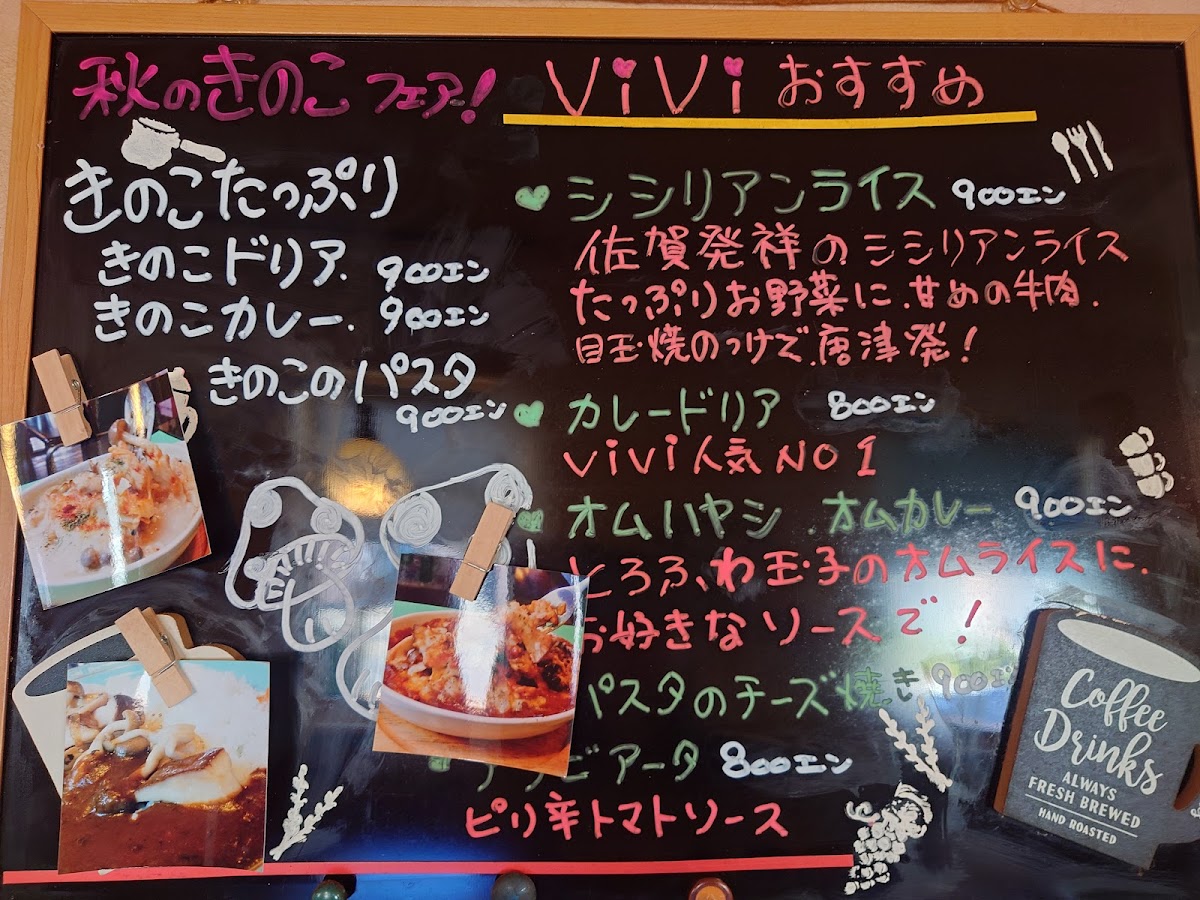 秋のきのこフェア!
きのこたっぷり
きのこドリア. 900エン
きのこカレー. 900エン
きのこのパスタ
900エン
ViVi おすすめ
シシリアンライス 900エン
佐賀発祥のシシリアンライス
たっぷりお野菜に.甘めの牛肉.
目玉焼のっけで.唐津発!
カレードリア 800エン
ViVi人気NO1
オムハヤシ オムカレー 900エン
とろふわ玉子のオムライスに.
お好きなソースで!
パスタのチーズ焼き 900エン
アラビアータ 800エン
ピリ辛トマトソース
Coffee
Drinks
ALWAYS
FRESH BREWED
HAND ROASTED